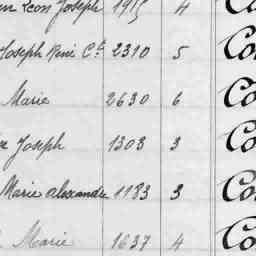 Leon Joseph 1915 4 Co
Joseph René Ct 2310 5 Co
Marie 2630 6 Co
Joseph 1303 3 Co
Marie Alexandre 1183 3 Co
Marie 1637 4 Co